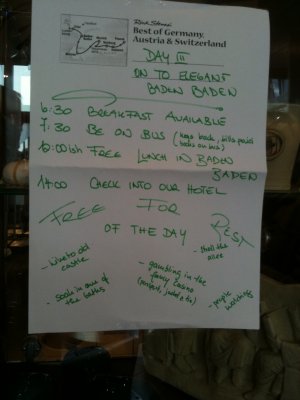 Rick Steves'
Best of Germany,
Austria & Switzerland
DAY III
ON TO ELEGANT
BADEN BADEN
6:30 BREAKFAST AVAILABLE
7:30 BE ON BUS (keys back, bills paid
bags on bus)
FREE LUNCH IN BADEN
BADEN
14:00 CHECK INTO OUR HOTEL
FREE FOR REST
OF THE DAY
- hike to old
castle
- soak in one of
the baths
- gambling in the
fancy casino
- stroll the
- people
watching